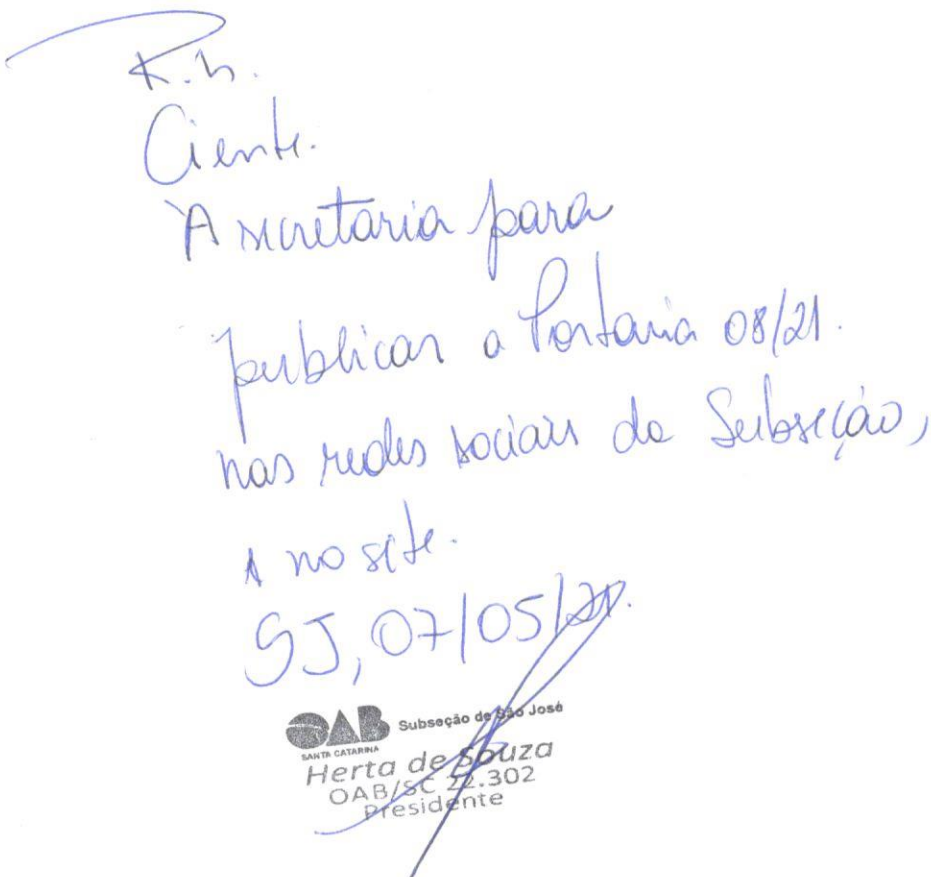 R.h.
Ciente.
À secretaria para
publicar a Portaria 08/21.
nas redes sociais da Subseção,
e no site.
SJ, 07/05/21.
OAB Subseção de São José
SANTA CATARINA
Herta de Souza
OAB/SC 22.302
Presidente